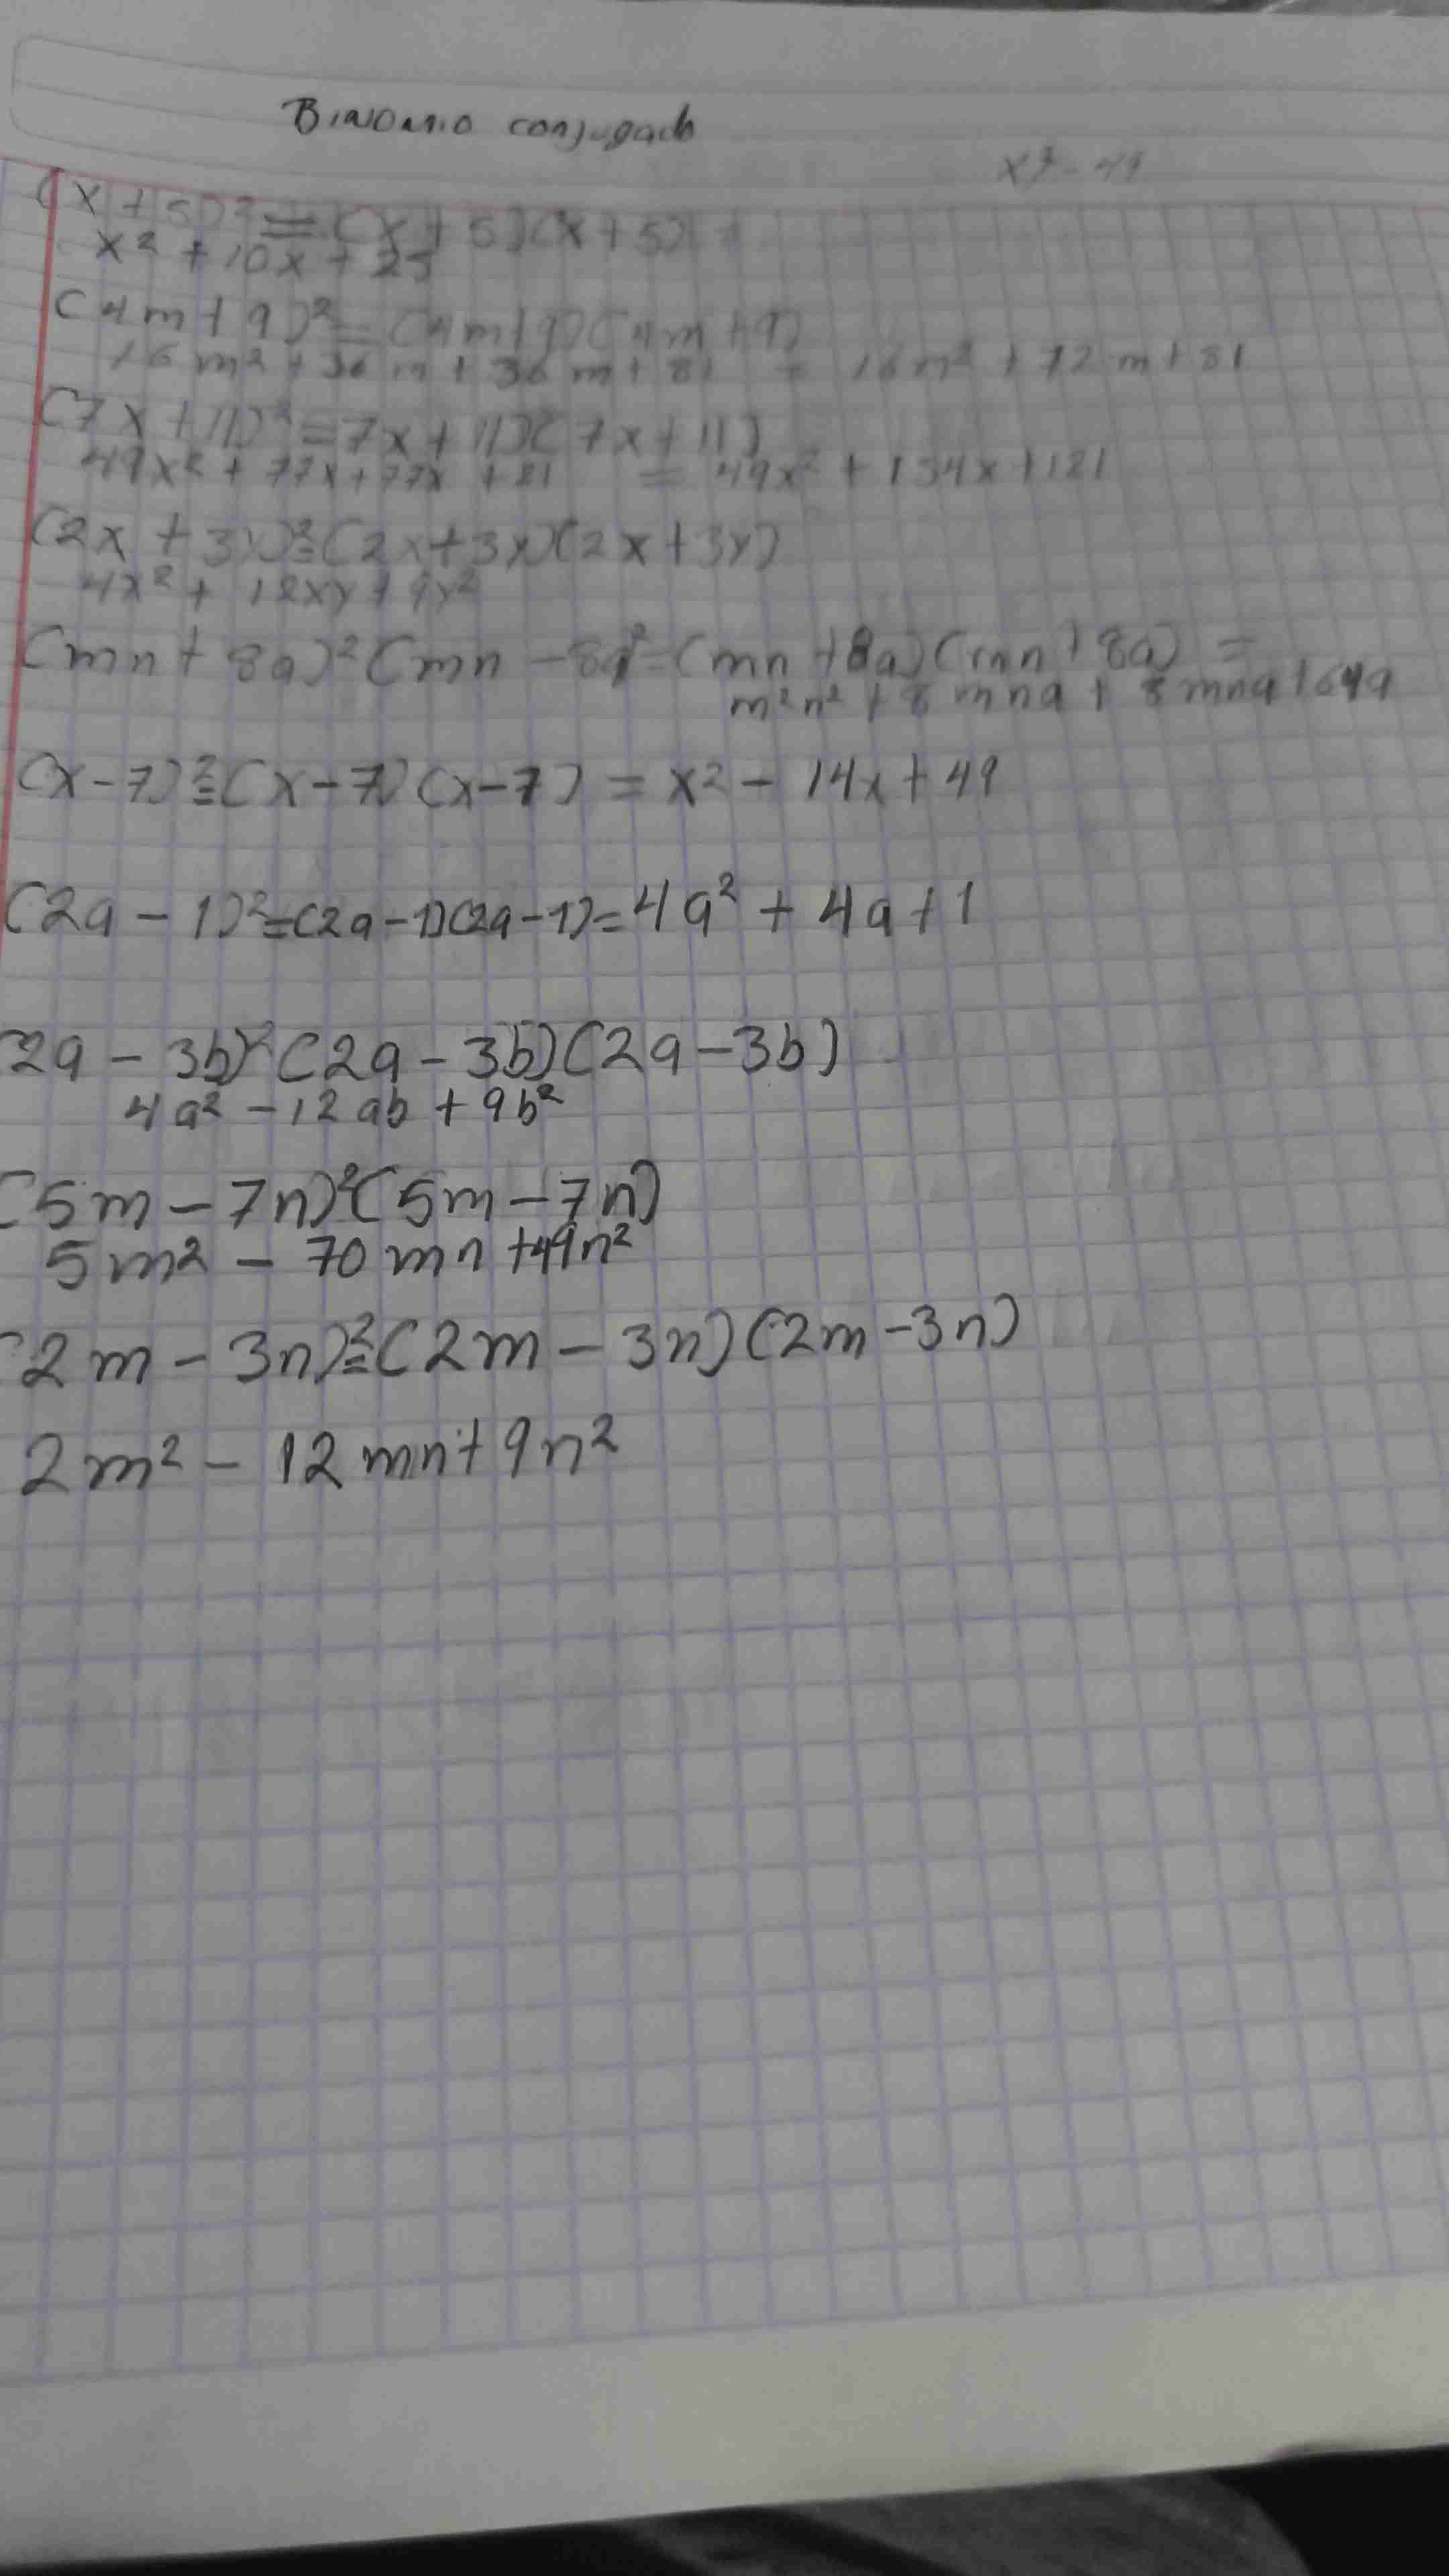 Binomio conjugado
x² - 49
(x + 5)² = (x + 5)(x + 5)
x² + 10x + 25
(4m + 9)² = (4m + 9)(4m + 9)
16m² + 36m + 36m + 81 = 16m² + 72m + 81
(7x + 11)² = 7x + 11)(7x + 11)
49x² + 77x + 77x + 21 = 49x² + 154x + 121
(2x + 3y)² = (2x + 3y)(2x + 3y)
4x² + 12xy + 9y²
(mn + 8a)² (mn - 8a² = (mn + 8a)(mn + 8a) =
m²n² + 8mna + 8mna + 64a
(x - 7)² = (x - 7)(x - 7) = x² - 14x + 49
(2a - 1)² = (2a - 1)(2a - 1) = 4a² + 4a + 1
(2a - 3b)² (2a - 3b)(2a - 3b)
4a² - 12ab + 9b²
(5m - 7n)² (5m - 7n)
5m² - 70mn + 49n²
(2m - 3n)² = (2m - 3n)(2m - 3n)
2m² - 12mn + 9n²